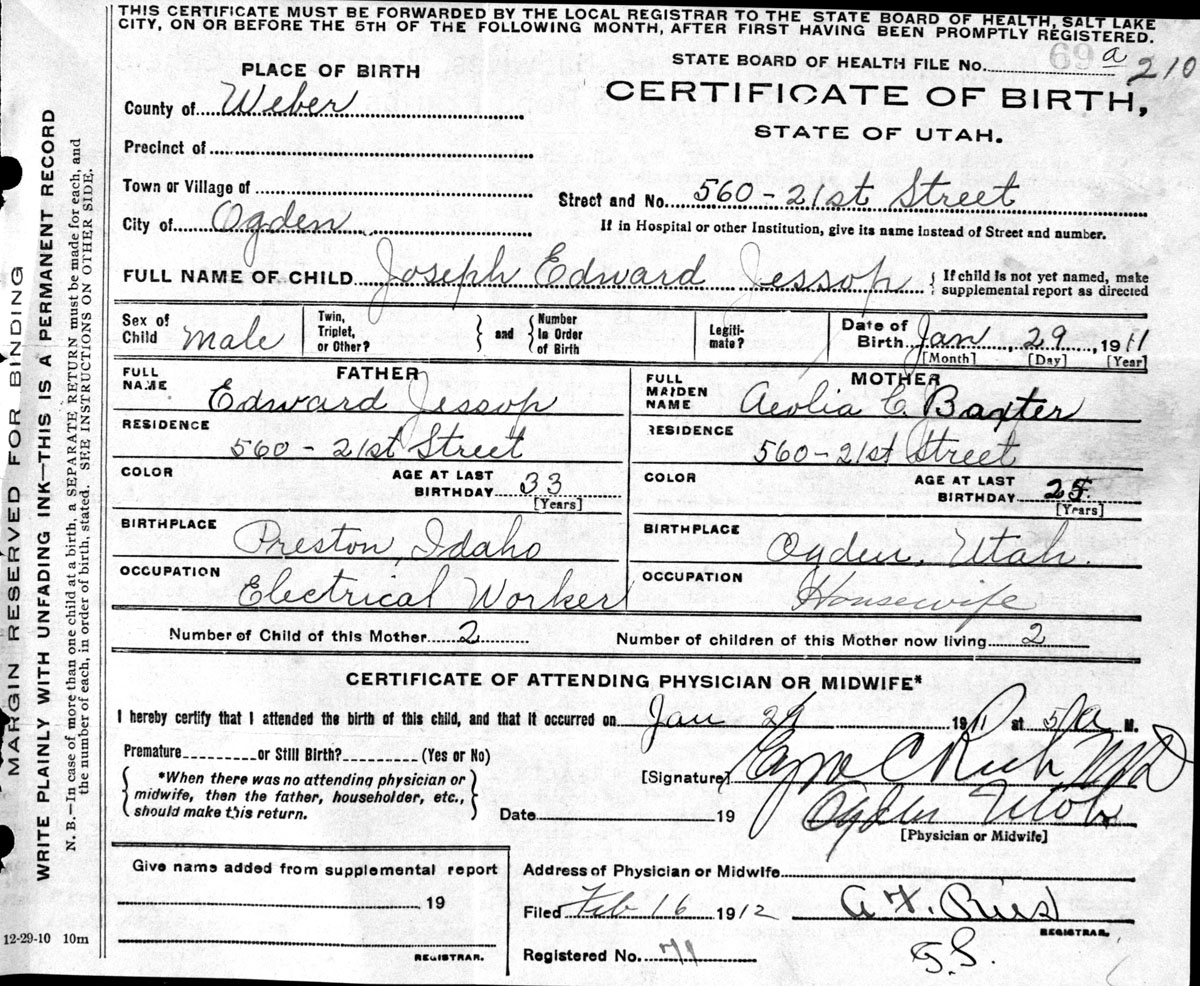 THIS CERTIFICATE MUST BE FORWARDED BY THE LOCAL REGISTRAR TO THE STATE BOARD OF HEALTH, SALT LAKE
CITY, ON OR BEFORE THE 5TH OF THE FOLLOWING MONTH, AFTER FIRST HAVING BEEN PROMPTLY REGISTERED.
MARGIN RESERVED FOR BINDING
WRITE PLAINLY WITH UNFADING INK—THIS IS A PERMANENT RECORD
N. B.—In case of more than one child at a birth, a SEPARATE RETURN must be made for each, and
the number of each, in order of birth, stated. SEE INSTRUCTIONS ON OTHER SIDE.
STATE BOARD OF HEALTH FILE No. 69 a 210
PLACE OF BIRTH
CERTIFICATE OF BIRTH,
County of Weber
STATE OF UTAH.
Precinct of
Town or Village of
Street and No. 560 - 21st Street
City of Ogden
If in Hospital or other Institution, give its name instead of Street and number.
FULL NAME OF CHILD Joseph Edward Jessop { If child is not yet named, make
supplemental report as directed
Sex of
Child Male
Twin,
Triplet,
or Other? } and { Number
in Order
of Birth
Legiti-
mate?
Date of
Birth Jan, 29, 1911
[Month] [Day] [Year]
FATHER
FULL
NAME Edward Jessop
MOTHER
FULL
MAIDEN
NAME Aeolia C. Baxter
RESIDENCE
560 - 21st Street
RESIDENCE
560 - 21st Street
COLOR
AGE AT LAST
BIRTHDAY 33
[Years]
COLOR
AGE AT LAST
BIRTHDAY 25
[Years]
BIRTHPLACE
Preston, Idaho
BIRTHPLACE
Ogden, Utah.
OCCUPATION
Electrical Worker
OCCUPATION
Housewife
Number of Child of this Mother 2
Number of children of this Mother now living 2
CERTIFICATE OF ATTENDING PHYSICIAN OR MIDWIFE*
I hereby certify that I attended the birth of this child, and that it occurred on Jan 29 1911 at 5 A M.
Premature or Still Birth? (Yes or No)
{ *When there was no attending physician or
midwife, then the father, householder, etc.,
should make this return. }
[Signature] C Rich MD
Date 19
Ogden Utah
[Physician or Midwife]
Give name added from supplemental report
19
REGISTRAR.
Address of Physician or Midwife
Filed Feb 16 1912
REGISTRAR.
Registered No. 71
12-29-10 10m